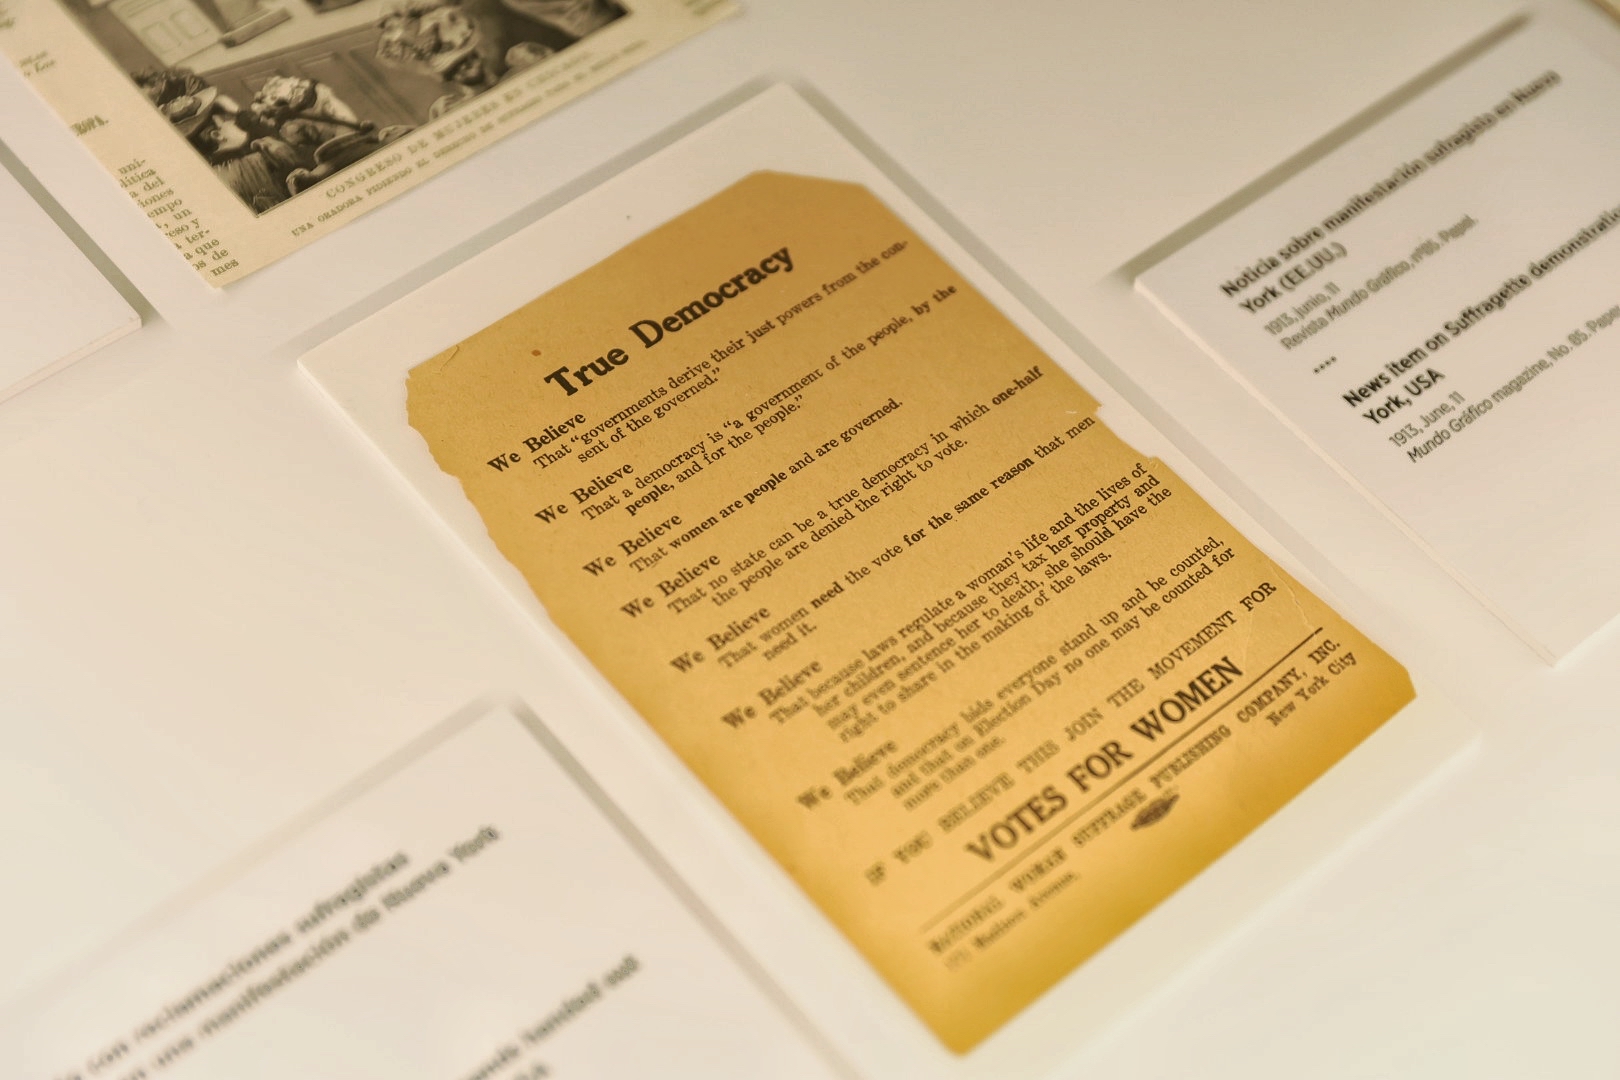 EUROPA.
uni-
lítica
a del
iones
empo
t, un
eso y
a ter-
a que
os de
mes
CONGRESO DE MUJERES EN CHICAGO.
UNA ORADORA PIDIENDO EL DERECHO DE SUFRAGIO PARA EL BELLO SEXO
True Democracy
We Believe
That "governments derive their just powers from the con-
sent of the governed."
We Believe
That a democracy is "a government of the people, by the
people, and for the people."
We Believe
That women are people and are governed.
We Believe
That no state can be a true democracy in which one-half
the people are denied the right to vote.
We Believe
That women need the vote for the same reason that men
need it.
We Believe
That because laws regulate a woman's life and the lives of
her children, and because they tax her property and
may even sentence her to death, she should have the
right to share in the making of the laws.
We Believe
That democracy bids everyone stand up and be counted,
and that on Election Day no one may be counted for
more than one.
IF YOU BELIEVE THIS JOIN THE MOVEMENT FOR
VOTES FOR WOMEN
NATIONAL WOMAN SUFFRAGE PUBLISHING COMPANY, INC.
New York City
Noticia sobre manifestación sufragista en Nueva
York (EE.UU.)
1913, junio, 11
Revista Mundo Gráfico, nº85. Papel.
....
News item on Suffragette demonstration
York, USA
1913, June, 11
Mundo Gráfico magazine, No. 85. Paper
con reclamaciones sufragistas
una manifestación de Nueva York
handed out